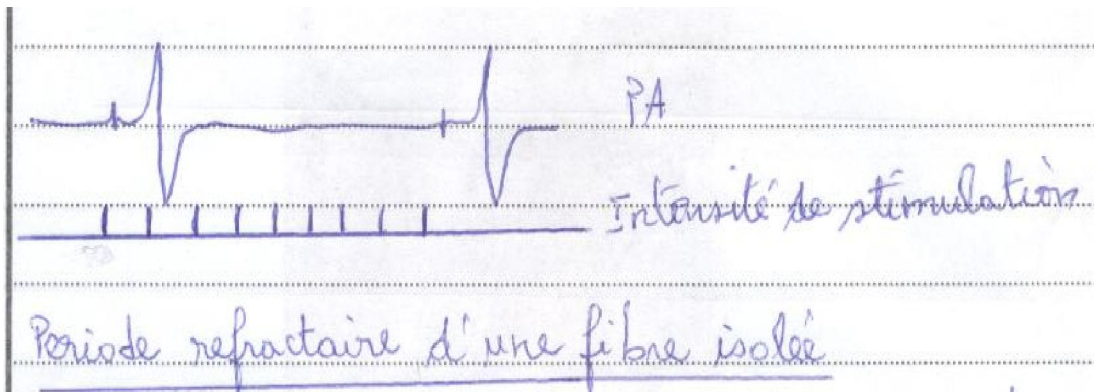 PA
Intensité de stimulation
Periode refractaire d'une fibre isolée